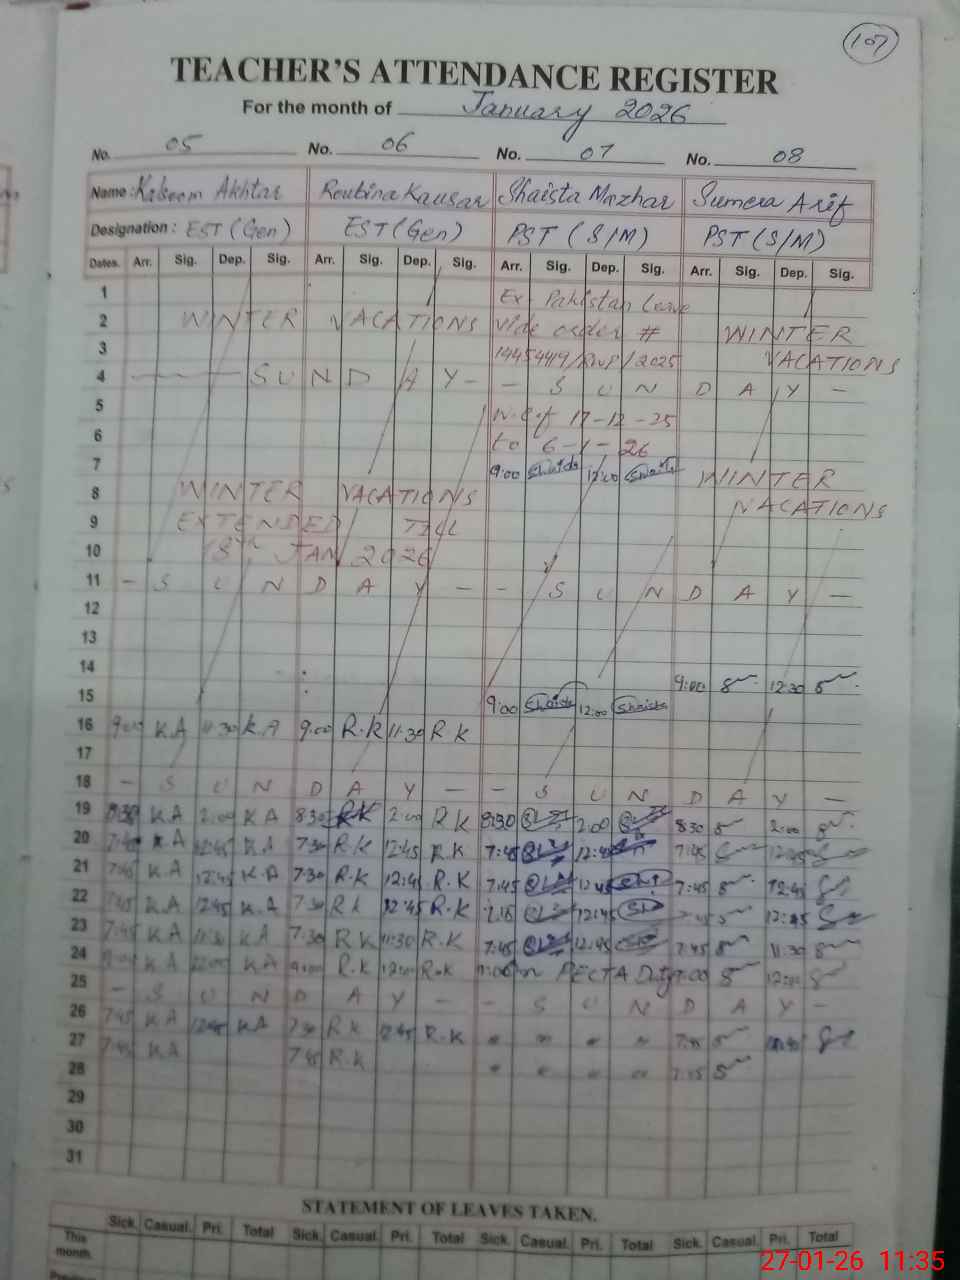 107
TEACHER'S ATTENDANCE REGISTER
For the month of January 2026
No. 05 No. 06 No. 07 No. 08
Name: Kalsoom Akhtar Roubina Kausar Shaista Mazhar Sumera Arif
Designation: EST (Gen) EST (Gen) PST (S/M) PST (S/M)
Dates. Arr. Sig. Dep. Sig. Arr. Sig. Dep. Sig. Arr. Sig. Dep. Sig. Arr. Sig. Dep. Sig.
1 Ex- Pakistan Leave
2 WINTER VACATIONS vide order # WINTER
3 /2025 VACATIONS
4 — SUNDAY - - SUN DAY —
5 w.e.f 17-12-25
6 to 6-1-26
7 9:00 12:00 WINTER
8 WINTER VACATIONS VACATIONS
9 EXTENDED TILL
10 18th JAN 2026
11 - SUN DAY - - SUN DAY -
12
13
14 9:00 12:30
15 9:00 Shaista 12:00 Shaista
16 9:00 K.A 11:30 K.A 9:00 R.K 11:30 R.K
17
18 - SUN DAY - - SUN DAY -
19 8:30 K A 2:00 K A 8:30 R K 2:00 R K 8:30 2:00 8:30 2:00
20 7:45 K A 12:45 K A 7:30 R K 12:45 R.K 7:45 12:45 7:45 12:45
21 7:45 K A 12:45 K.A 7:30 R.K 12:45 R.K 7:45 12:45 7:45 12:45
22 7:45 K.A 12:45 K.A 7:30 R K 12:45 R.K 12:45 7:45 12:45
23 7:45 K A 11:30 K A 7:30 R K 11:30 R.K 7:45 12:45 7:45 11:30
24 9:00 K A 12:00 K A 9:00 R.K 12:00 R.K on PECTA Duty 9:00 12:00
25 - SUN DAY - - SUN DAY -
26 7:45 K A 12:45 K A 7:30 R K 12:45 R.K " " " " 7:45
27 7:45 K A 7:45 R.K " " " " 7:45
28
29
30
31
STATEMENT OF LEAVES TAKEN.
Sick. Casual. Pri. Total Sick. Casual. Pri. Total Sick. Casual. Pri. Total Sick. Casual. Pri. Total
This month.
27-01-26 11:35